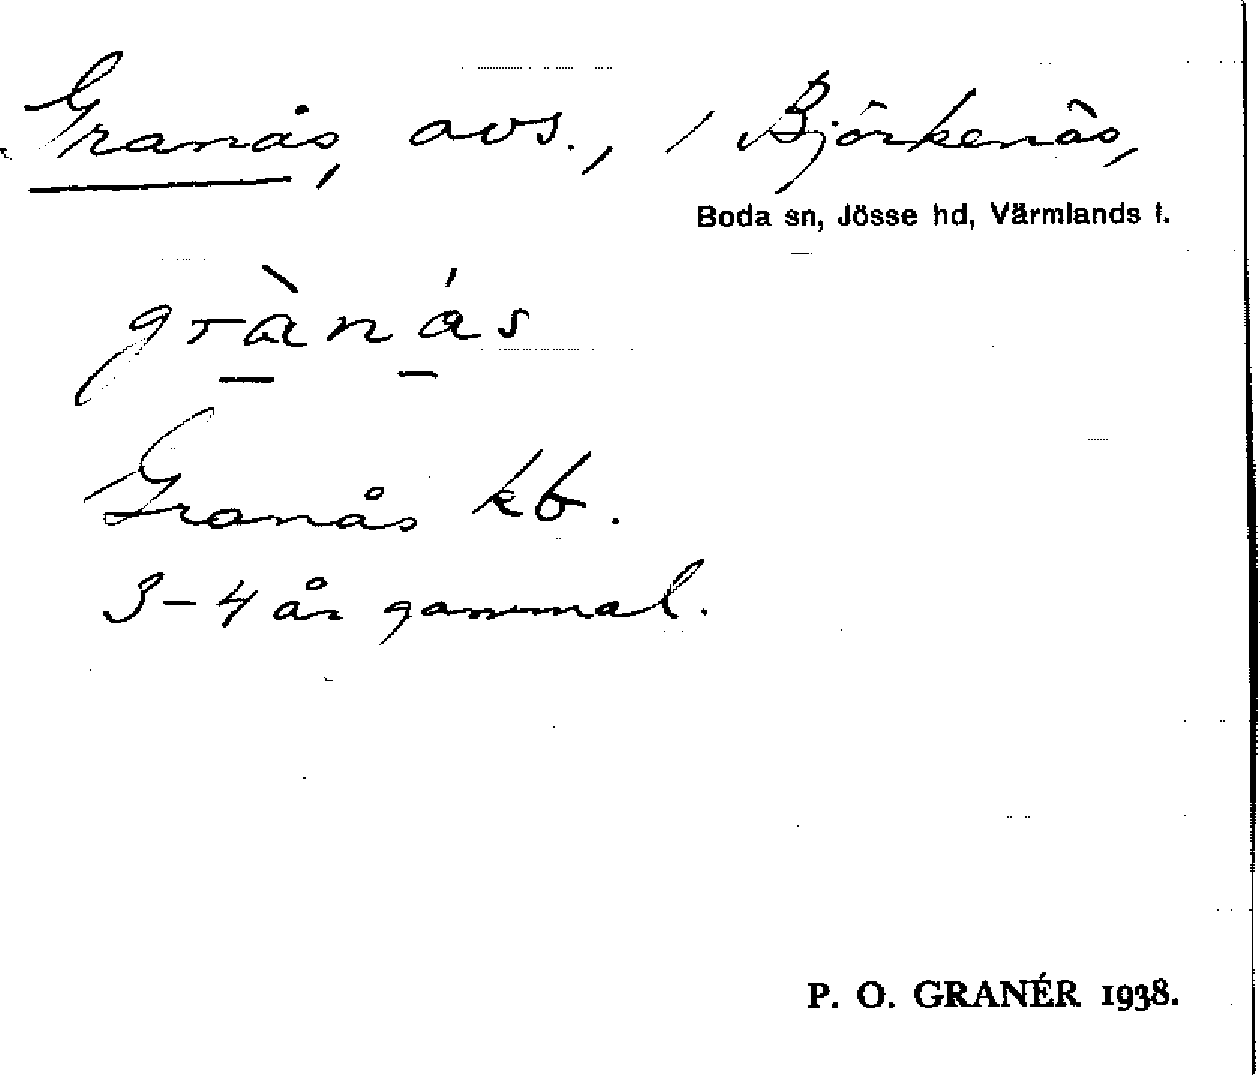 Granås, avs., / Björkenäs,
Boda sn, Jösse hd, Värmlands l.
grànás
Granås kb.
3-4 år gammal.
P. O. GRANÉR 1938.